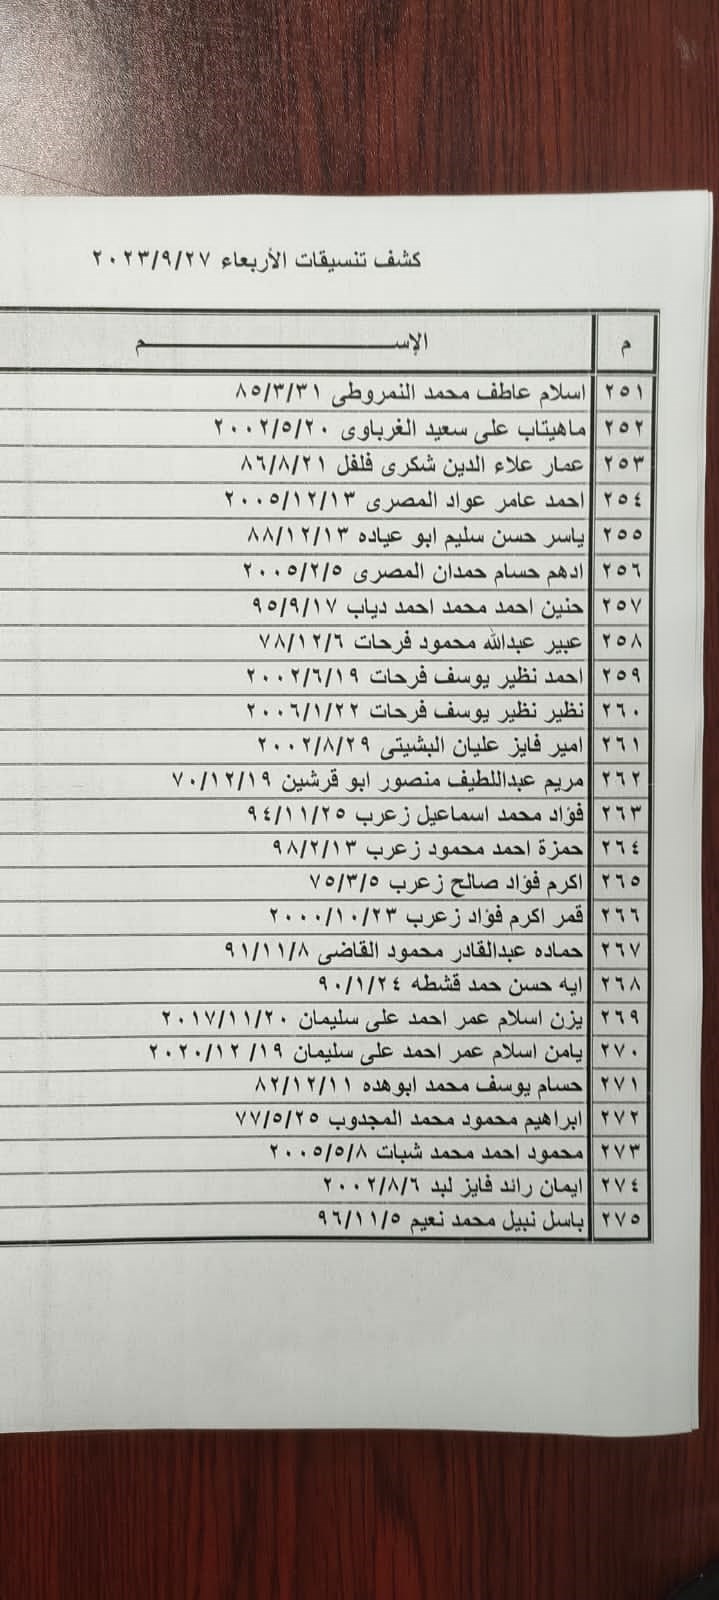 كشف تنسيقات الأربعاء ٢٠٢٣/٩/٢٧
م الإســــــــــــــــم
٢٥١ اسلام عاطف محمد النمروطى ٨٥/٣/٣١
٢٥٢ ماهيتاب على سعيد الغرباوى ٢٠٠٢/٥/٢٠
٢٥٣ عمار علاء الدين شكرى فلفل ٨٦/٨/٢١
٢٥٤ احمد عامر عواد المصرى ٢٠٠٥/١٢/١٣
٢٥٥ ياسر حسن سليم ابو عياده ٨٨/١٢/١٣
٢٥٦ ادهم حسام حمدان المصرى ٢٠٠٥/٢/٥
٢٥٧ حنين احمد محمد احمد دياب ٩٥/٩/١٧
٢٥٨ عبير عبدالله محمود فرحات ٧٨/١٢/٦
٢٥٩ احمد نظير يوسف فرحات ٢٠٠٢/٦/١٩
٢٦٠ نظير نظير يوسف فرحات ٢٠٠٦/١/٢٢
٢٦١ امير فايز عليان البشيتى ٢٠٠٢/٨/٢٩
٢٦٢ مريم عبداللطيف منصور ابو قرشين ٧٠/١٢/١٩
٢٦٣ فؤاد محمد اسماعيل زعرب ٩٤/١١/٢٥
٢٦٤ حمزة احمد محمود زعرب ٩٨/٢/١٣
٢٦٥ اكرم فؤاد صالح زعرب ٧٥/٣/٥
٢٦٦ قمر اكرم فؤاد زعرب ٢٠٠٠/١٠/٢٣
٢٦٧ حماده عبدالقادر محمود القاضى ٩١/١١/٨
٢٦٨ ايه حسن حمد قشطه ٩٠/١/٢٤
٢٦٩ يزن اسلام عمر احمد على سليمان ٢٠١٧/١١/٢٠
٢٧٠ يامن اسلام عمر احمد على سليمان ١٩/ ٢٠٢٠/١٢
٢٧١ حسام يوسف محمد ابوهده ٨٢/١٢/١١
٢٧٢ ابراهيم محمود محمد المجدوب ٧٧/٥/٢٥
٢٧٣ محمود احمد محمد شبات ٢٠٠٥/٥/٨
٢٧٤ ايمان رائد فايز لبد ٢٠٠٢/٨/٦
٢٧٥ باسل نبيل محمد نعيم ٩٦/١١/٥